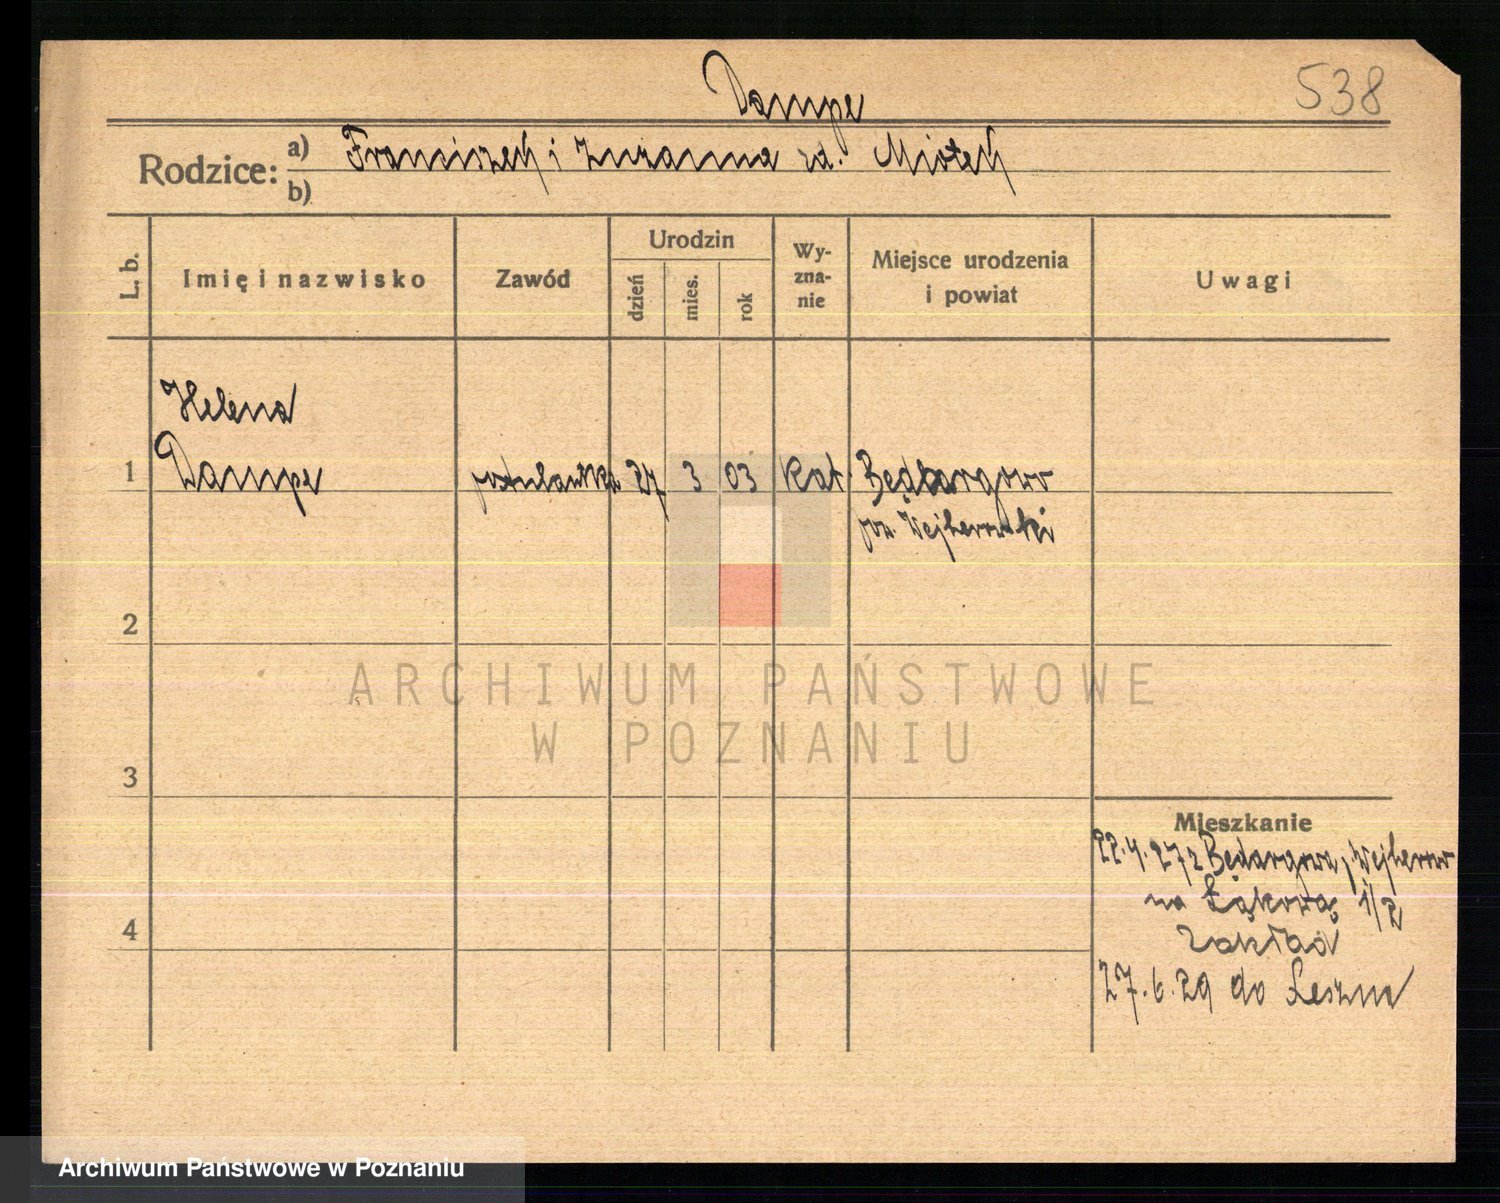 Dampe
538
Rodzice: a) Franciszek i Zuzanna zd. Miotek
b)
L. b.
Imię i nazwisko
Zawód
Urodzin
dzień
mies.
rok
Wy-
zna-
nie
Miejsce urodzenia
i powiat
Uwagi
Helena
1 Dampe postulantka 27 3 03 Kat. Będargowo
pow. Wejherowski
2
ARCHIWUM PAŃSTWOWE
W POZNANIU
3
Mieszkanie
22.4.27 z Będargowa, Wejherow
na Łąkową 1/2
4 Zakład
27.6.29 do Leszna
Archiwum Państwowe w Poznaniu